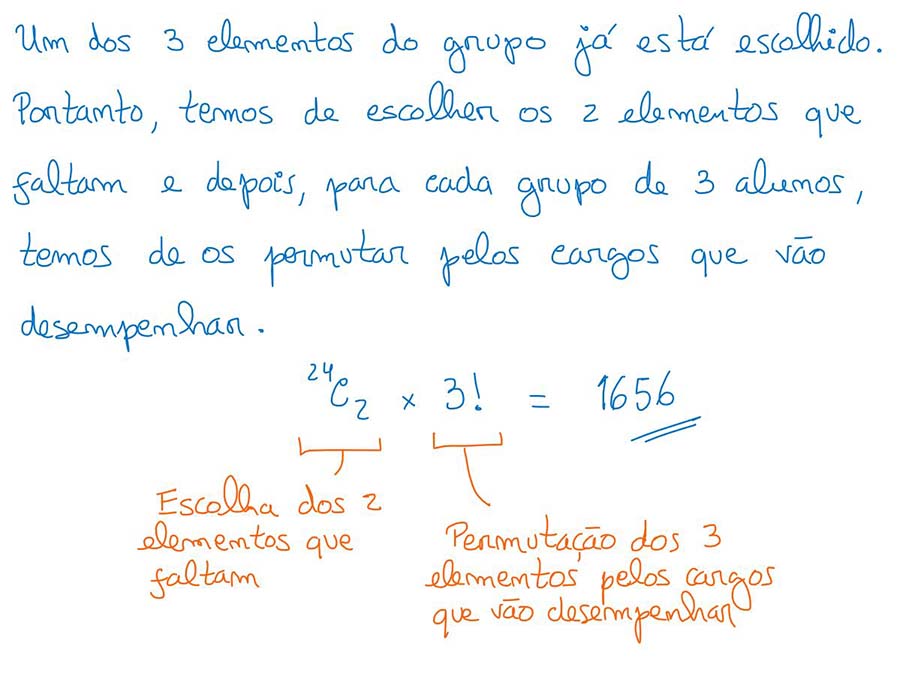 Um dos 3 elementos do grupo já está escolhido.
Portanto, temos de escolher os 2 elementos que
faltam e depois, para cada grupo de 3 alunos,
temos de os permutar pelos cargos que vão
desempenhar.
²⁴C₂ × 3! = 1656
Escolha dos 2
elementos que
faltam
Permutação dos 3
elementos pelos cargos
que vão desempenhar